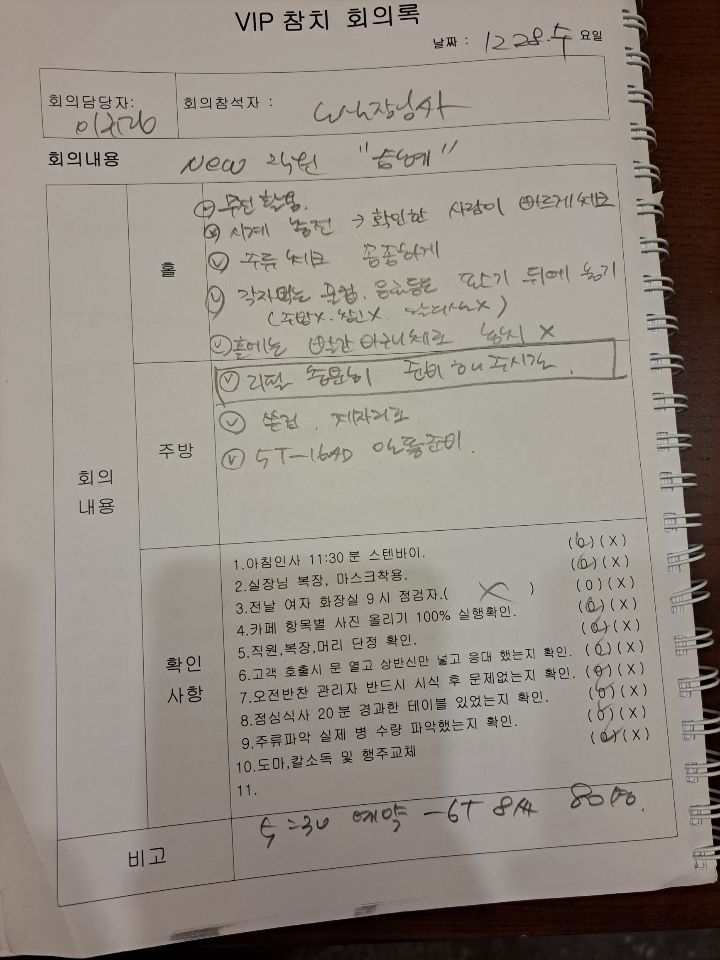 VIP 참치 회의록
날짜 : 12 28. 수 요일
회의담당자:
회의참석자 :
회의내용 New 직원
회의 내용
홀
무전 활용.
시계 충전 → 확인한 사람이 바르게 체크
주류 체크 꼼꼼하게
각자먹는 물컵. 음료등은 뒤에 놓기
(주방X. X. X)
홀에는 빨간 바구니채로 놓지 X
주방
리필 충분히 준비 해 주시길.
물컵. 제자리로
5T-16 준비.
확인 사항
1.아침인사 11:30 분 스텐바이. (o) (X)
2.실장님 복장, 마스크착용. (o) (X)
3.전날 여자 화장실 9 시 점검자.( X ) (o) (X)
4.카페 항목별 사진 올리기 100% 실행확인. (o) (X)
5.직원,복장,머리 단정 확인. (o) (X)
6.고객 호출시 문 열고 상반신만 넣고 응대 했는지 확인. (o) (X)
7.오전반찬 관리자 반드시 시식 후 문제없는지 확인. (o) (X)
8.점심식사 20 분 경과한 테이블 있었는지 확인. (o) (X)
9.주류파악 실제 병 수량 파악했는지 확인. (o) (X)
10.도마,칼소독 및 행주교체 (o) (X)
11.
비고
예약 -6T 80